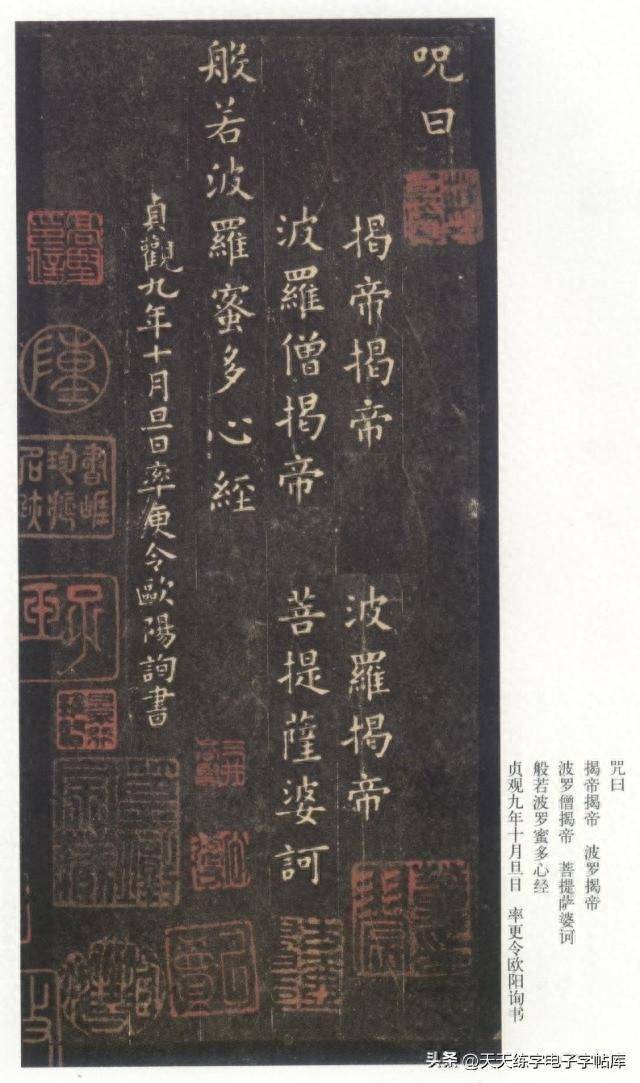 咒曰
揭帝揭帝 波羅揭帝
波羅僧揭帝 菩提薩婆訶
般若波羅蜜多心經
貞觀九年十月旦日率更令歐陽詢書
咒曰
揭帝揭帝 波罗揭帝
波罗僧揭帝 菩提萨婆诃
般若波罗蜜多心经
贞观九年十月旦日 率更令欧阳询书
头条 @天天练字电子字帖库